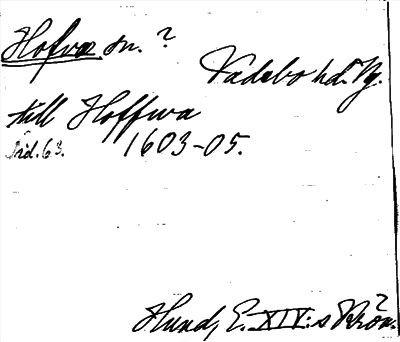 Hofva sn. ?
Vadsbo hd. Vg.
till Hoffwa
Ård. 63. 1603-05.
Hund, E. XIV:s Krön.